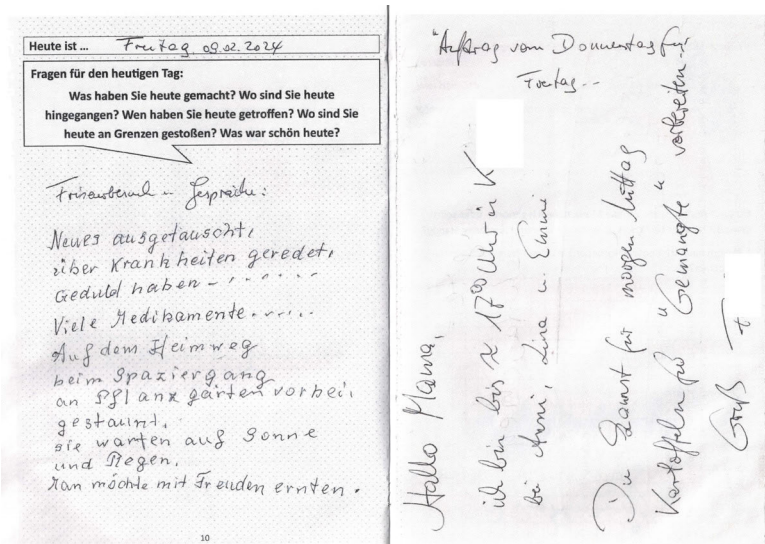 Heute ist ... Freitag, 09.02.2024
Fragen für den heutigen Tag:
Was haben Sie heute gemacht? Wo sind Sie heute
hingegangen? Wen haben Sie heute getroffen? Wo sind Sie
heute an Grenzen gestoßen? Was war schön heute?
Friseurbesuch u. Gespräche:
Neues ausgetauscht,
über Krankheiten geredet,
Geduld haben – . . . . . .
Viele Medikamente. . . . .
Auf dem Heimweg
beim Spaziergang
an Pflanzgärten vorbei,
gestaunt.
sie warten auf Sonne
und Regen.
Man möchte mit Freuden ernten.
10
Auftrag vom Donnerstag für
Freitag...
Hallo Mama,
ich bin bis 17⁰⁰ Uhr in K
bei Arni, Lina u. Emmi
Du kannst für morgen Mittag
Kartoffeln für "Gemangte" vorbereiten
Gruß T